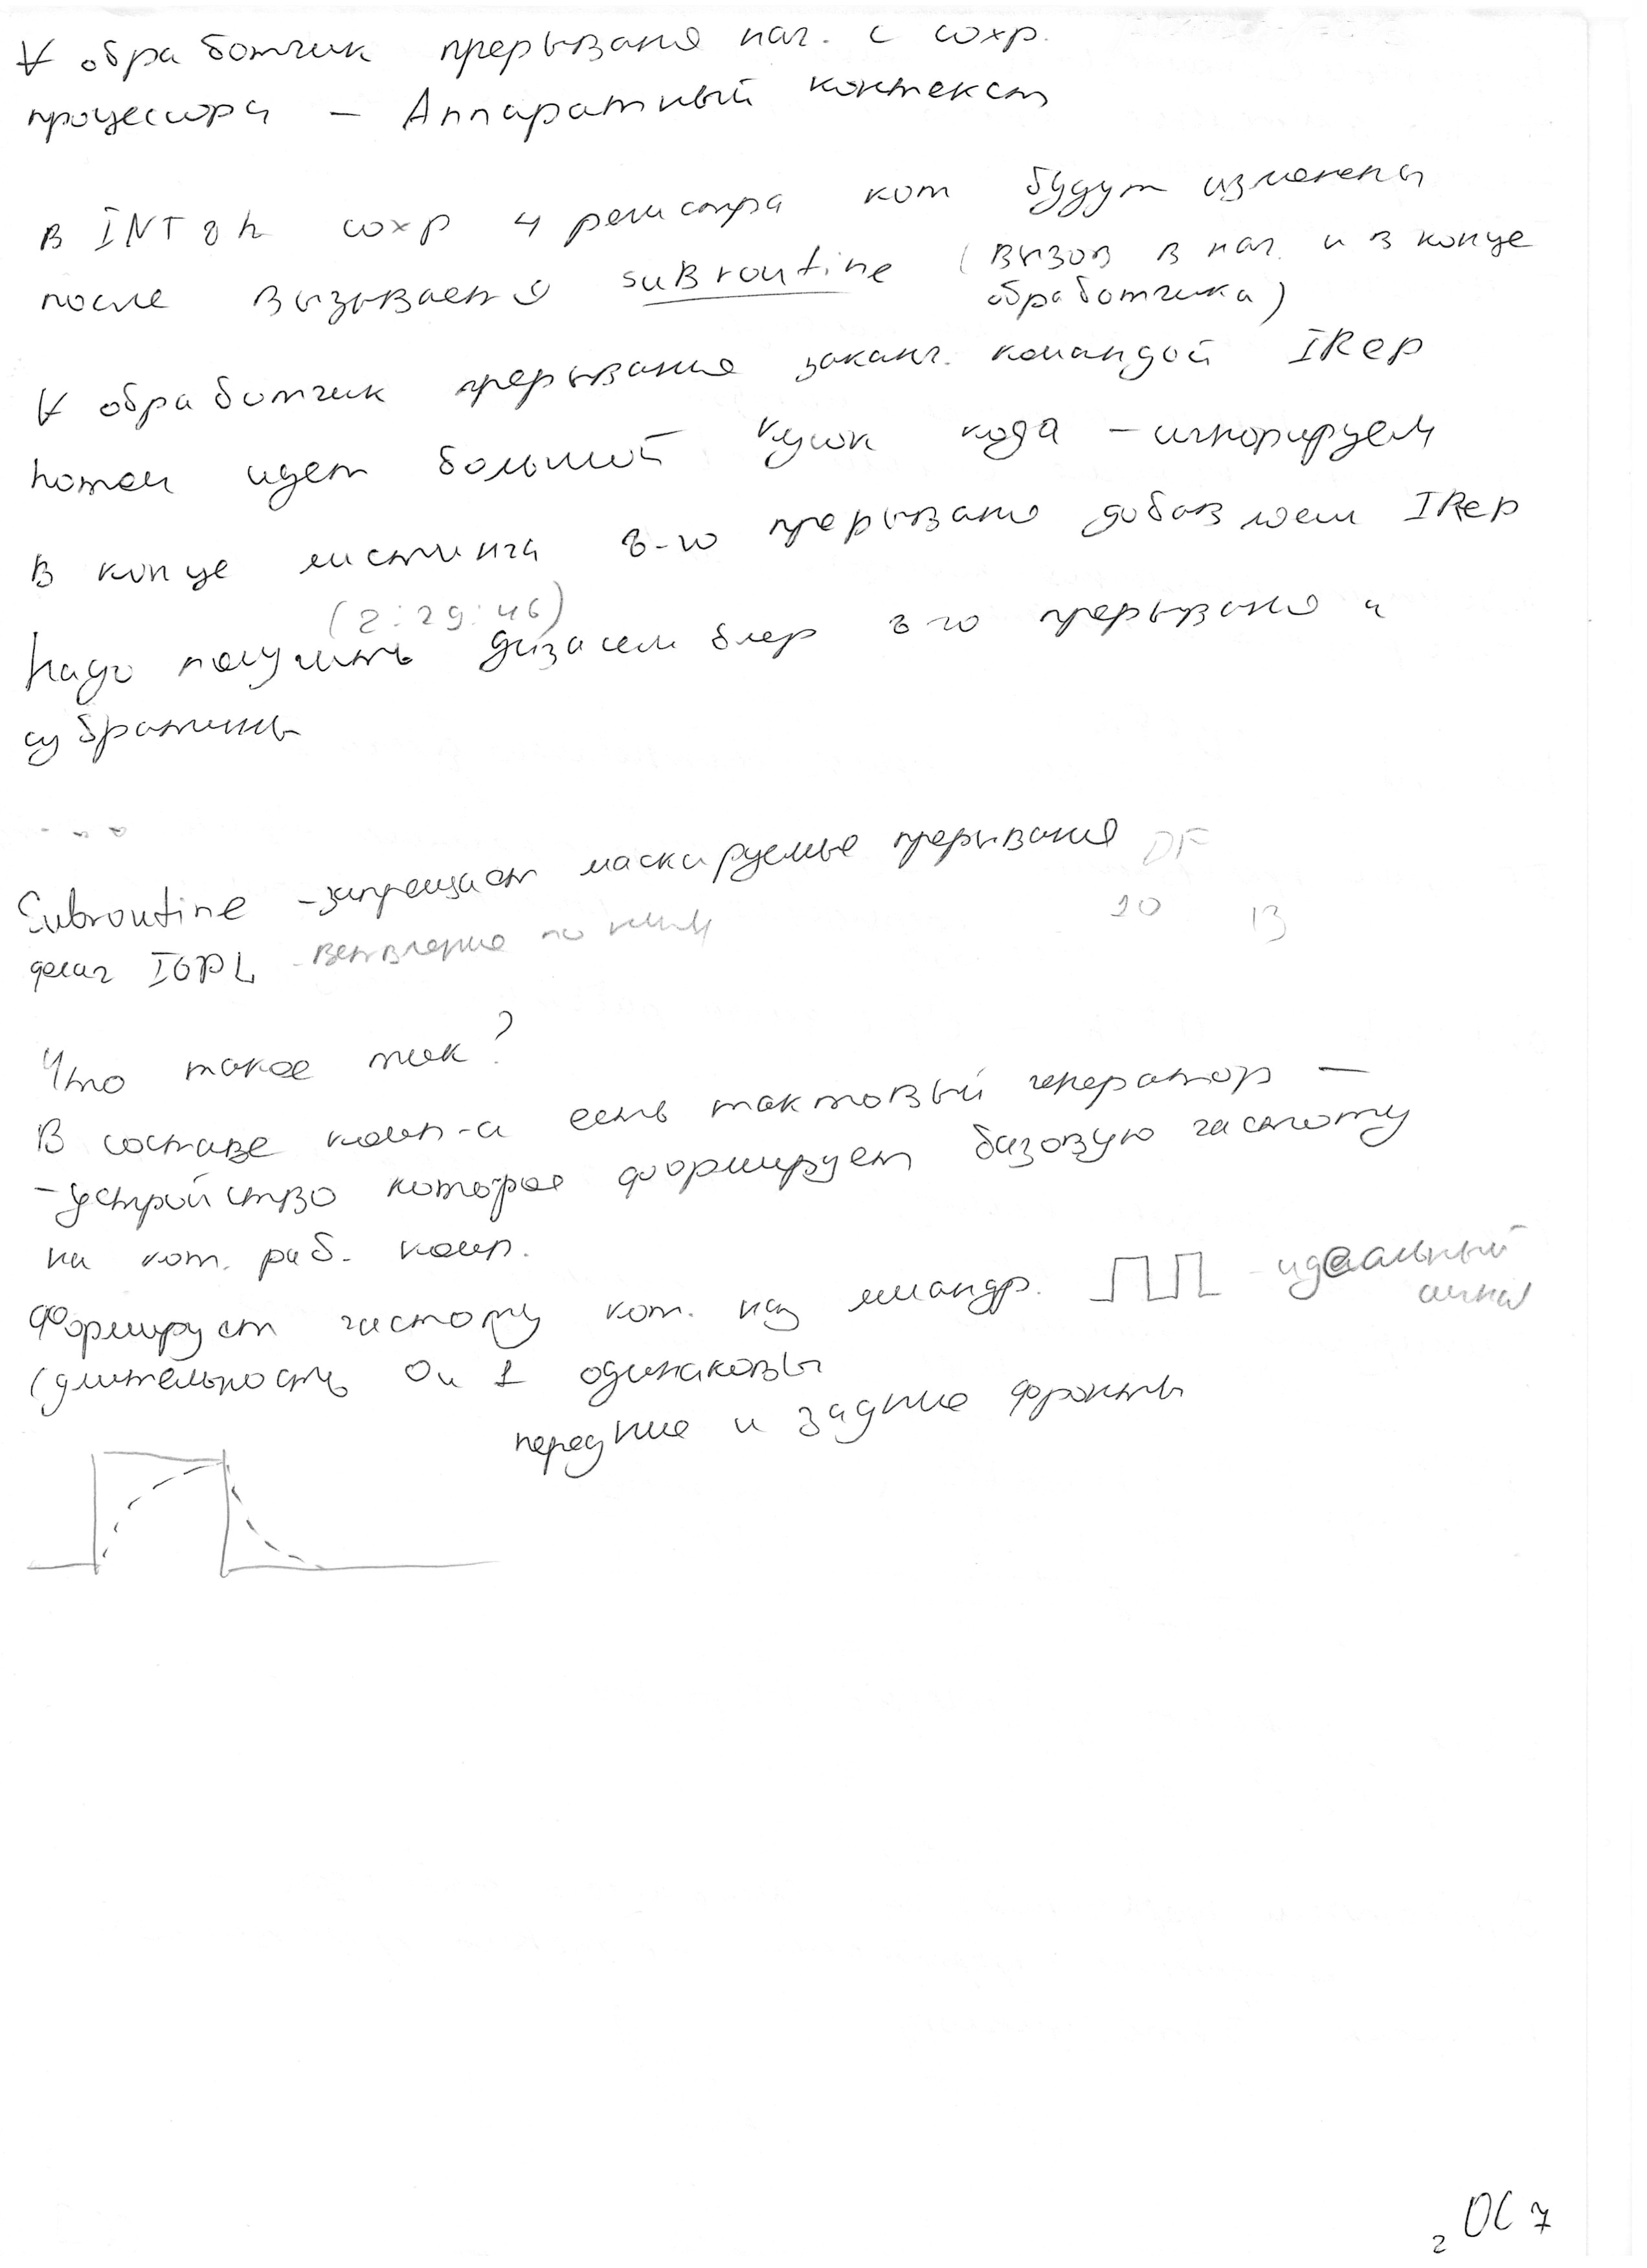 ∀ обработчик прерывания нач. с сохр.
процессора – Аппаратный контекст
В INT 8h сохр 4 регистра кот будут изменены
после вызывается subroutine (вызов в нач. и в конце
обработчика)
∀ обработчик прерывания заканч. командой IRep
потом идет большой кусок кода – игнорируем
В конце листинга 8-го прерывания добавляем IRep
(2:29:46)
Надо получить дизасемблер 8го прерывания и
субратинь
...
Subroutine – запрещает маскируемые прерывания DF
20 13
флаг IOPL – ветвление по ним
Что такое тик?
В составе комп-а есть тактовый генератор –
– устройство которое формирует базовую частоту
на кот. раб. комп.
Формирует частоту кот. наз меандр. – идеальный
сигнал
(длительность 0 и 1 одинаковы
передние и задние фронты
2 ОС 7